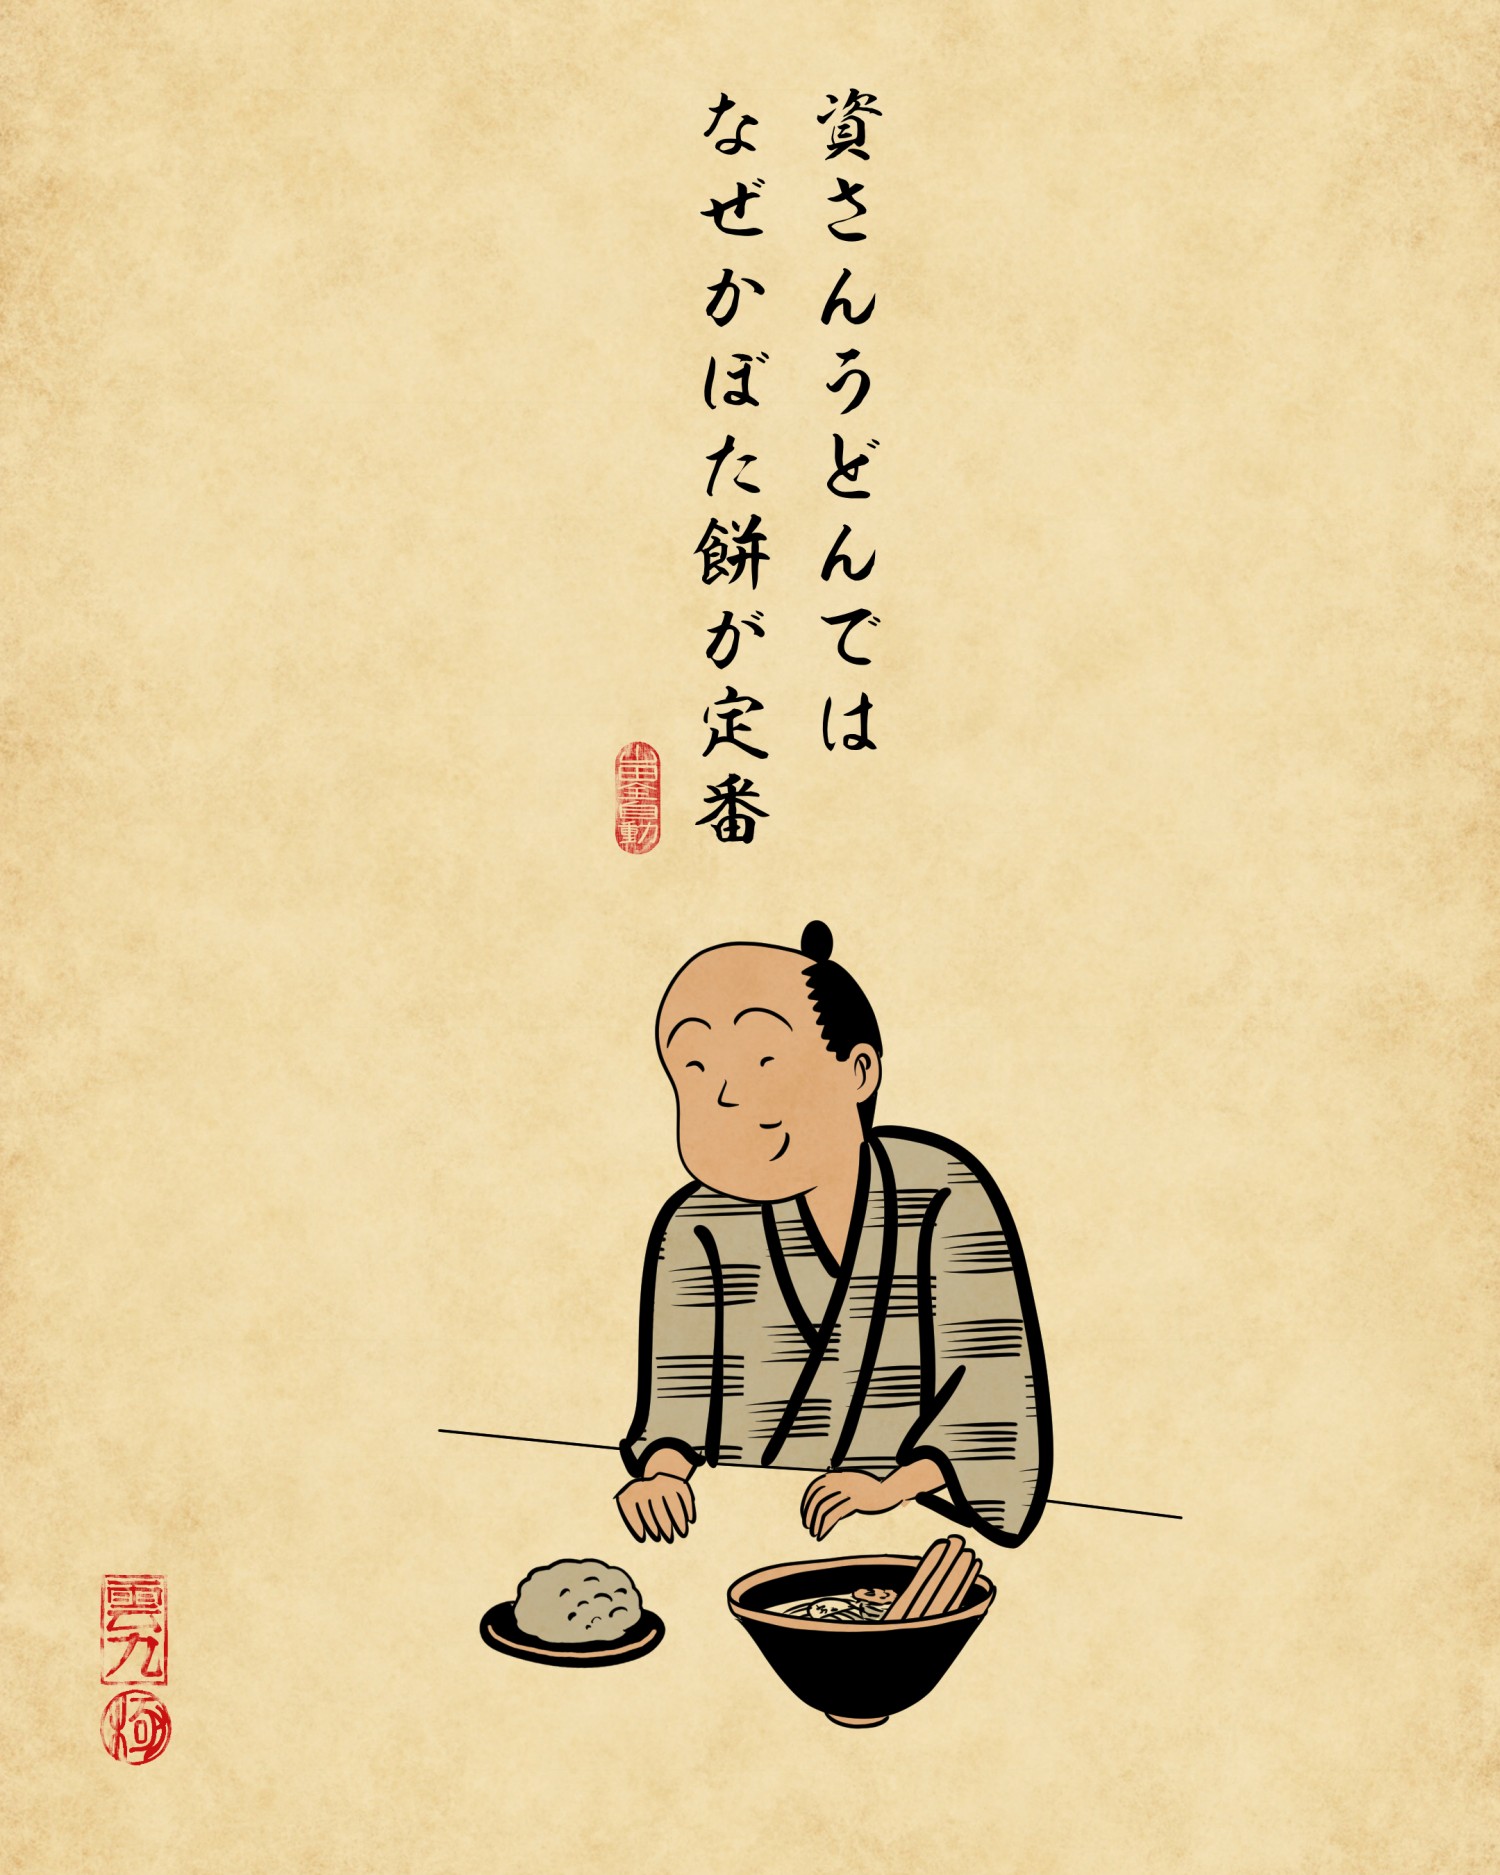 資さんうどんでは
なぜかぼた餅が定番
雲九
極